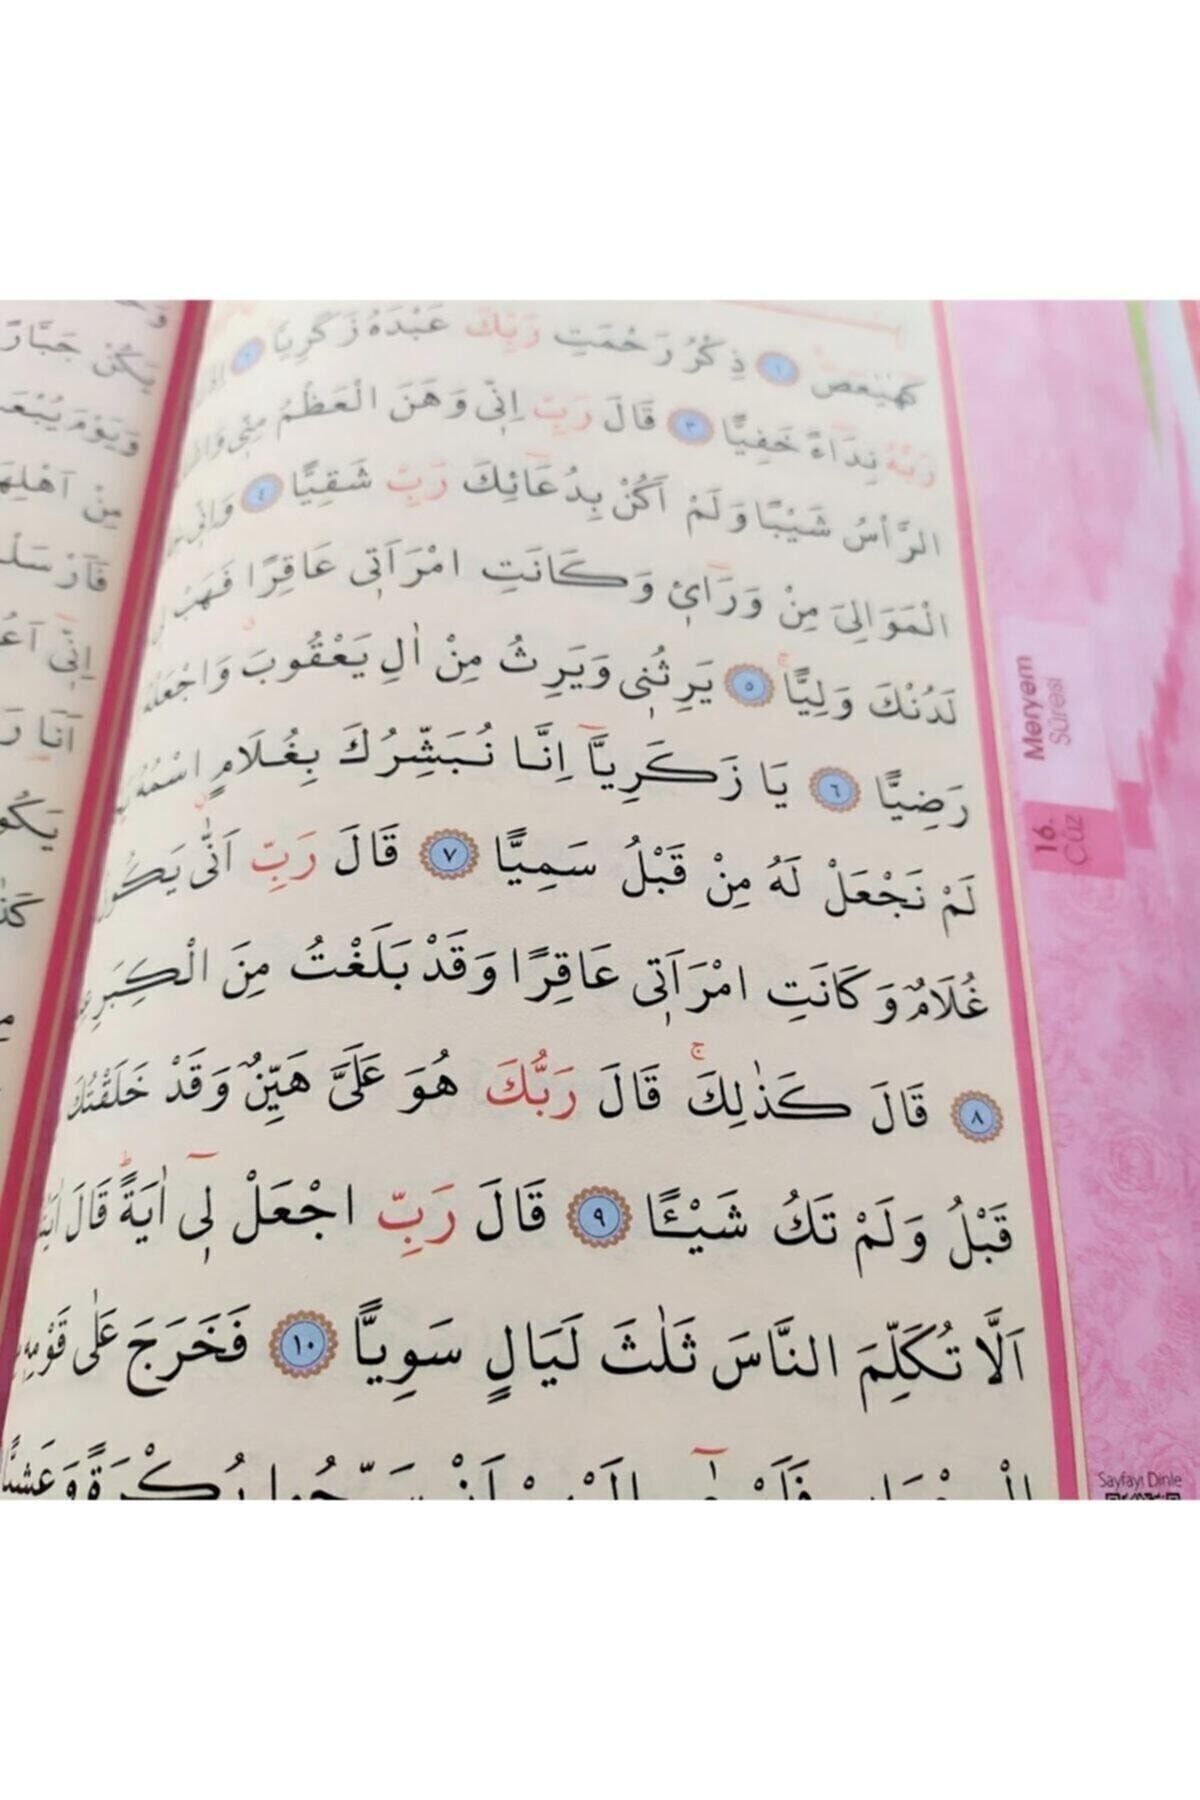 كهيعص ١ ذِكْرُ رَحْمَتِ رَبِّكَ عَبْدَهُ زَكَرِيَّا ٢
رَبَّهُ نِدَاءً خَفِيًّا ٣ قَالَ رَبِّ اِنّ۪ي وَهَنَ الْعَظْمُ مِنّ۪ي
الرَّأْسُ شَيْبًا وَلَمْ اَكُنْ بِدُعَائِكَ رَبِّ شَقِيًّا ٤ وَاِنّ۪ي
الْمَوَالِيَ مِنْ وَرَاۤئ۪ي وَكَانَتِ امْرَاَت۪ي عَاقِرًا فَهَبْ
لَدُنْكَ وَلِيًّاۙ ٥ يَرِثُن۪ي وَيَرِثُ مِنْ اٰلِ يَعْقُوبَ وَاجْعَلْهُ
رَضِيًّا ٦ يَا زَكَرِيَّاۤ اِنَّا نُبَشِّرُكَ بِغُلَامٍ اسْمُهُ
لَمْ نَجْعَلْ لَهُ مِنْ قَبْلُ سَمِيًّا ٧ قَالَ رَبِّ اَنّٰى يَكُونُ
غُلَامٌ وَكَانَتِ امْرَاَت۪ي عَاقِرًا وَقَدْ بَلَغْتُ مِنَ الْكِبَرِ
٨ قَالَ كَذٰلِكَۚ قَالَ رَبُّكَ هُوَ عَلَيَّ هَيِّنٌ وَقَدْ خَلَقْتُكَ
قَبْلُ وَلَمْ تَكُ شَيْـًٔا ٩ قَالَ رَبِّ اجْعَلْ ل۪ۤي اٰيَةًۜ قَالَ
اَلَّا تُكَلِّمَ النَّاسَ ثَلٰثَ لَيَالٍ سَوِيًّا ١٠ فَخَرَجَ عَلٰى قَوْمِه۪
سَبِّحُوا بُكْرَةً وَعَشِيًّا
يَكُنْ جَبَّارًا
وَيَوْمَ يُبْعَثُ
مِنْ اَهْلِهَا
اِنّ۪ۤي
Meryem
Sûresi
16.
Cüz
Sayfayı Dinle